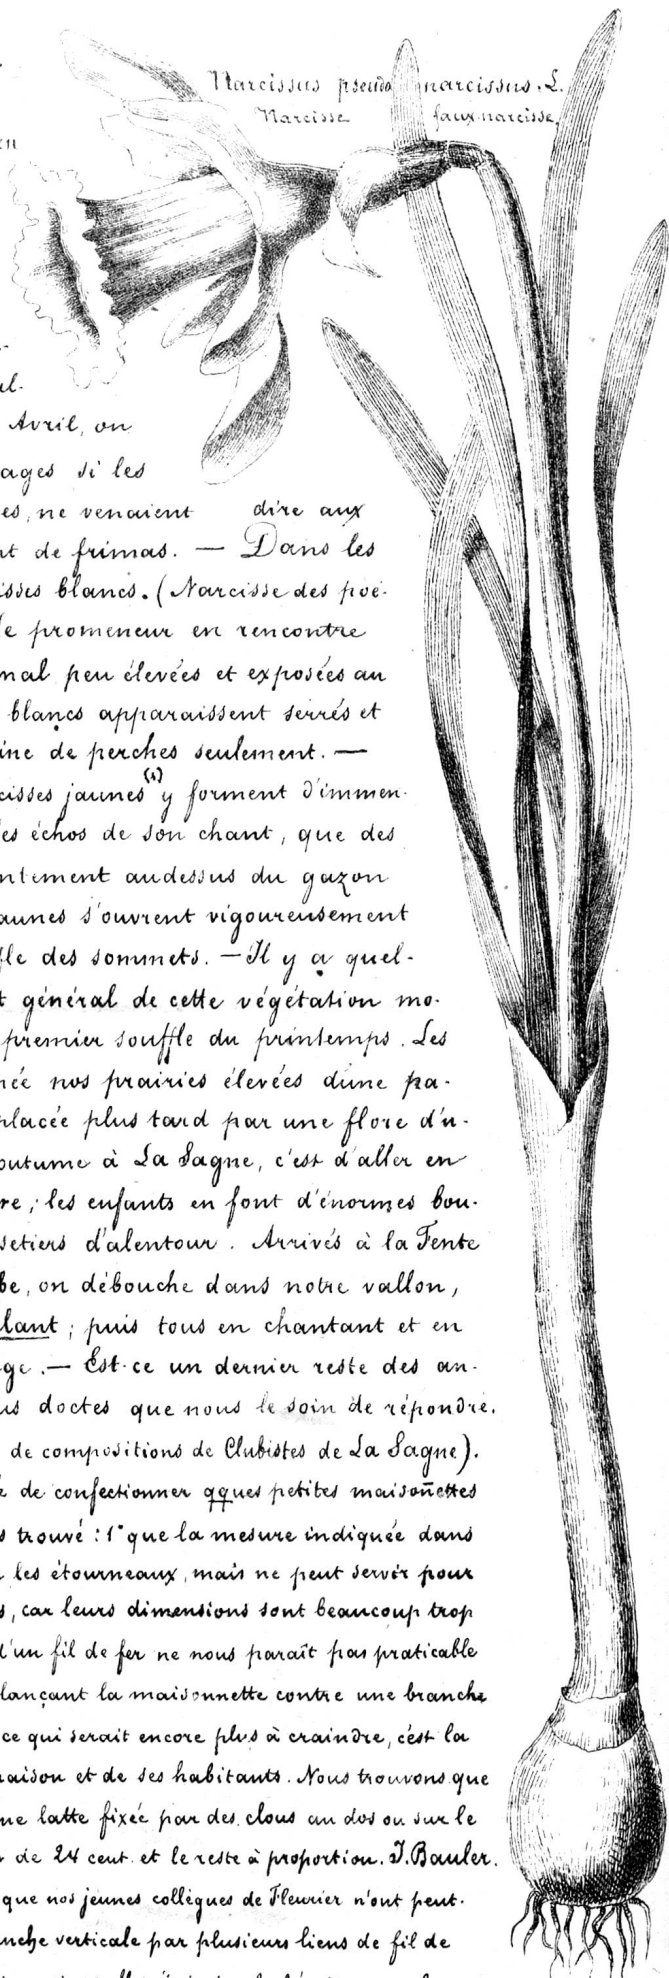 Narcissus pseudo narcissus. L.
Narcisse faux-narcisse,
en
al-
Avril, on
ages si les
es, ne venaient dire aux
nt de frimas. — Dans les
isses blancs. (Narcisse des poë-
e promeneur en rencontre
nal peu élevées et exposées au
blancs apparaissent serrés et
ine de perches seulement. —
cisses jaunes (1) y forment d'immen-
es échos de son chant, que des
ntement audessus du gazon
aunes s'ouvrent vigoureusement
fle des sommets. — Il y a quel-
t général de cette végétation mo-
premier souffle du printemps. Les
née nos prairies élevées dune pa-
placée plus tard par une flore d'u-
outume à La Sagne, c'est d'aller en
re, les enfants en font d'énormes bou-
setiers d'alentour. Arrivés à la Fente
be, on débouche dans notre vallon,
lant; puis tous en chantant et en
ge. — Est-ce un dernier reste des an-
us doctes que nous le soin de répondre.
de compositions de Clubistes de La Sagne).
de confectionner qques petites maisonettes
s trouvé: 1° que la mesure indiquée dans
les étourneaux, mais ne peut servir pour
s, car leurs dimensions sont beaucoup trop
d'un fil de fer ne nous paraît pas praticable
lançant la maisonnette contre une branche
ce qui serait encore plus à craindre, c'est la
aison et de ses habitants. Nous trouvons que
ne latte fixée par des clous au dos ou sur le
de 24 cent. et le reste à proportion. J. Bauler.
que nos jeunes collègues de Fleurier n'ont peut-
nche verticale par plusieurs liens de fil de